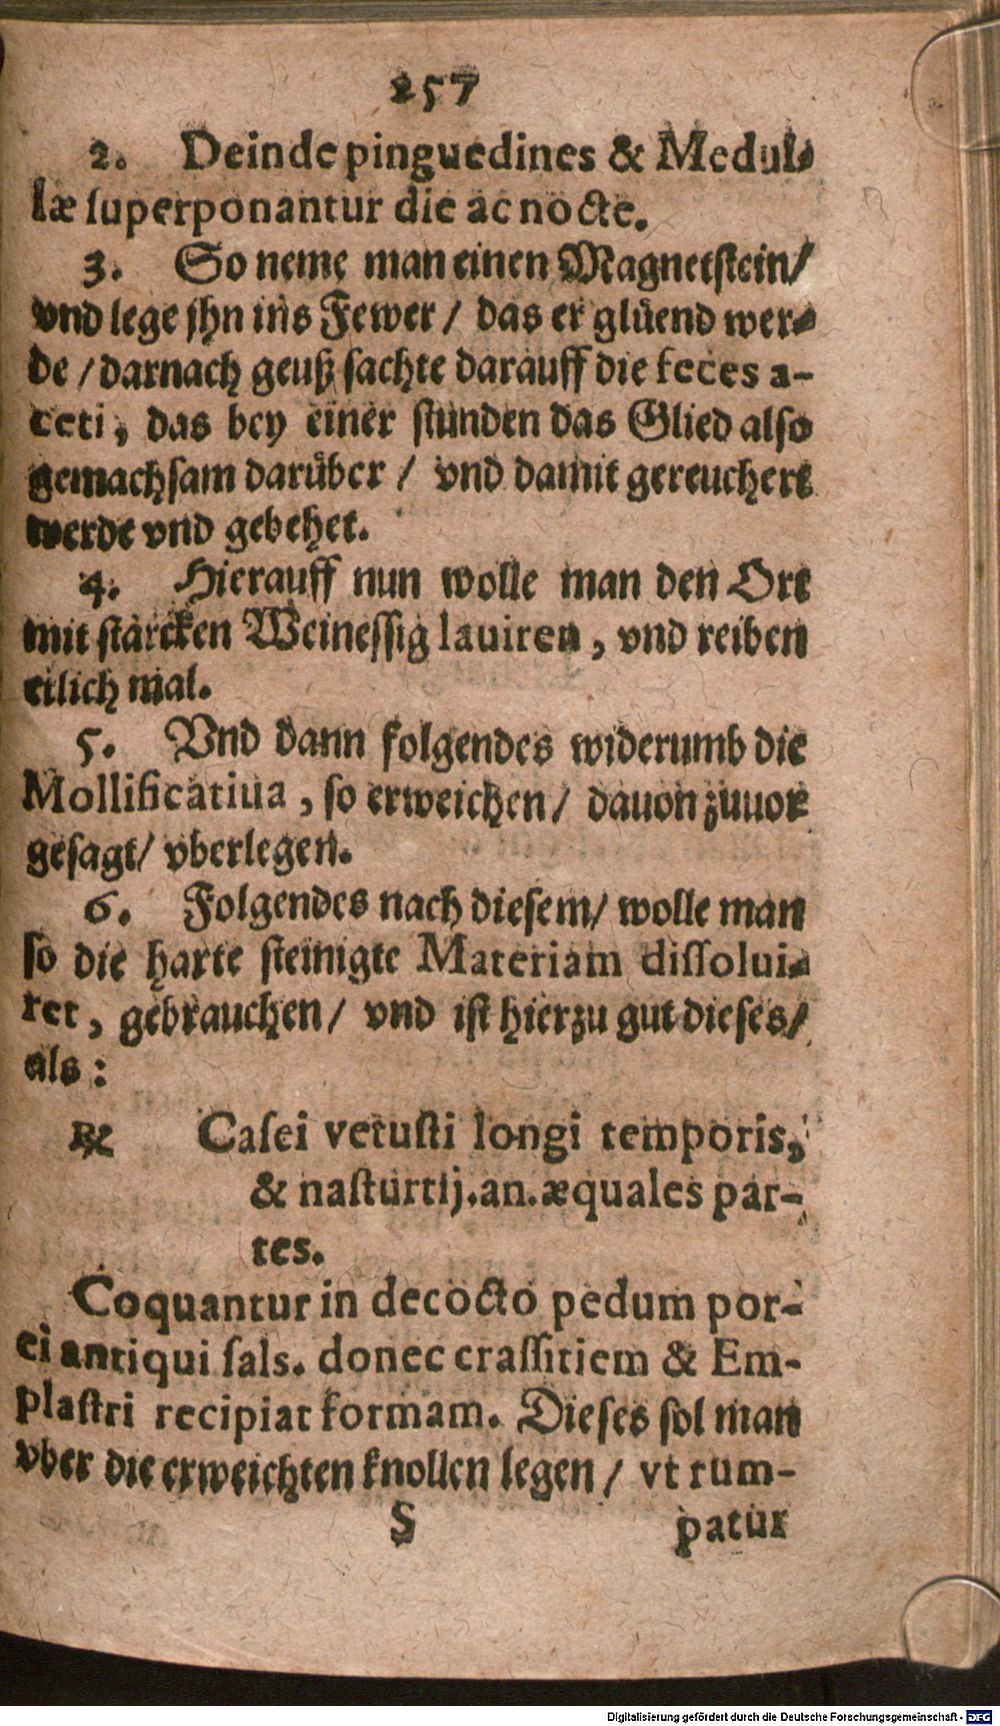 257
2. Deinde pinguedines & Medul-
læ superponantur die ac nocte.
3. So neme man einen Magnetstein/
vnd lege jhn ins Fewer / das er glüend wer-
de / darnach geuß sachte darauff die feces a-
ceti, das bey einer stunden das Glied also
gemachsam darüber / vnd damit gereuchert
werde vnd gebehet.
4. Hierauff nun wolle man den Ort
mit starcken Weinessig lauiren, vnd reiben
etlich mal.
5. Vnd dann folgendes widerumb die
Mollificatiua, so erweichen / dauon zuuor
gesagt/ vberlegen.
6. Folgendes nach diesem/ wolle man
so die harte steinigte Materiam dissolui-
ret, gebrauchen / vnd ist hierzu gut dieses/
als:
℞ Casei vetusti longi temporis,
& nasturtij. an. æquales par-
tes.
Coquantur in decocto pedum por-
ci antiqui sals. donec crassitiem & Em-
plastri recipiat formam. Dieses sol man
vber die erweichten knollen legen / vt rum-
S patur
Digitalisierung gefördert durch die Deutsche Forschungsgemeinschaft - DFG